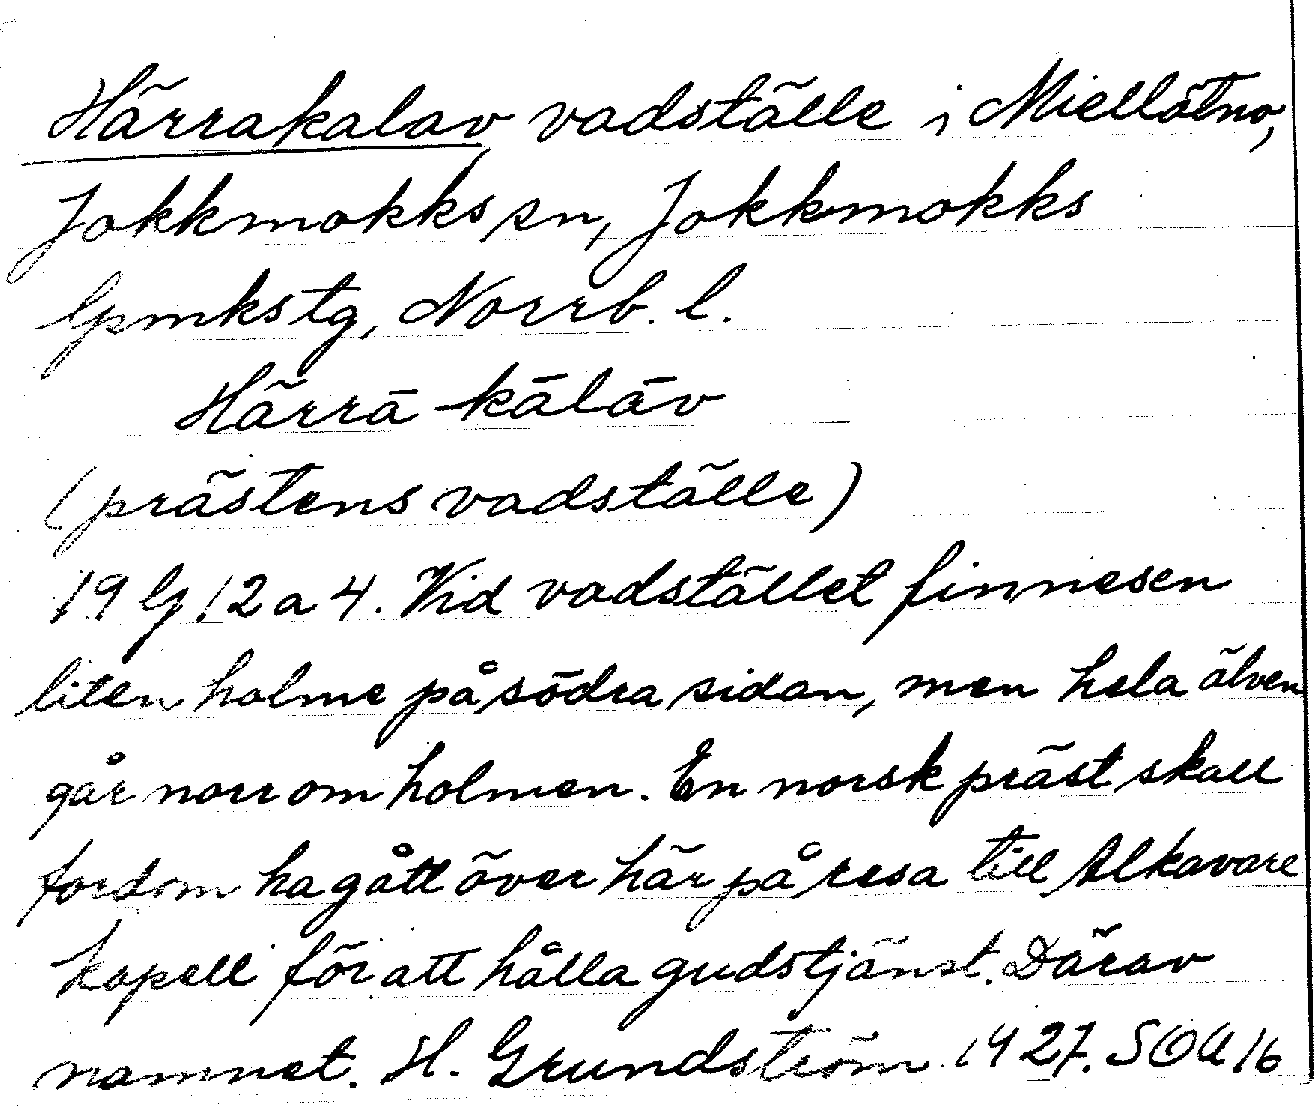 Härrakalav vadställe i Miellätno,
Jokkmokks sn, Jokkmokks
lpmkstg, Norrb. l.
Härrā kālāv
(prästens vadställe)
19 G 12 a 4. Vid vadstället finnes en
liten holme på södra sidan, men hela älven
går norr om holmen. En norsk präst skall
fordom ha gått över här på resa till Alkavare
kapell för att hålla gudstjänst. Därav
namnet. H. Grundström 1927. SOU 16